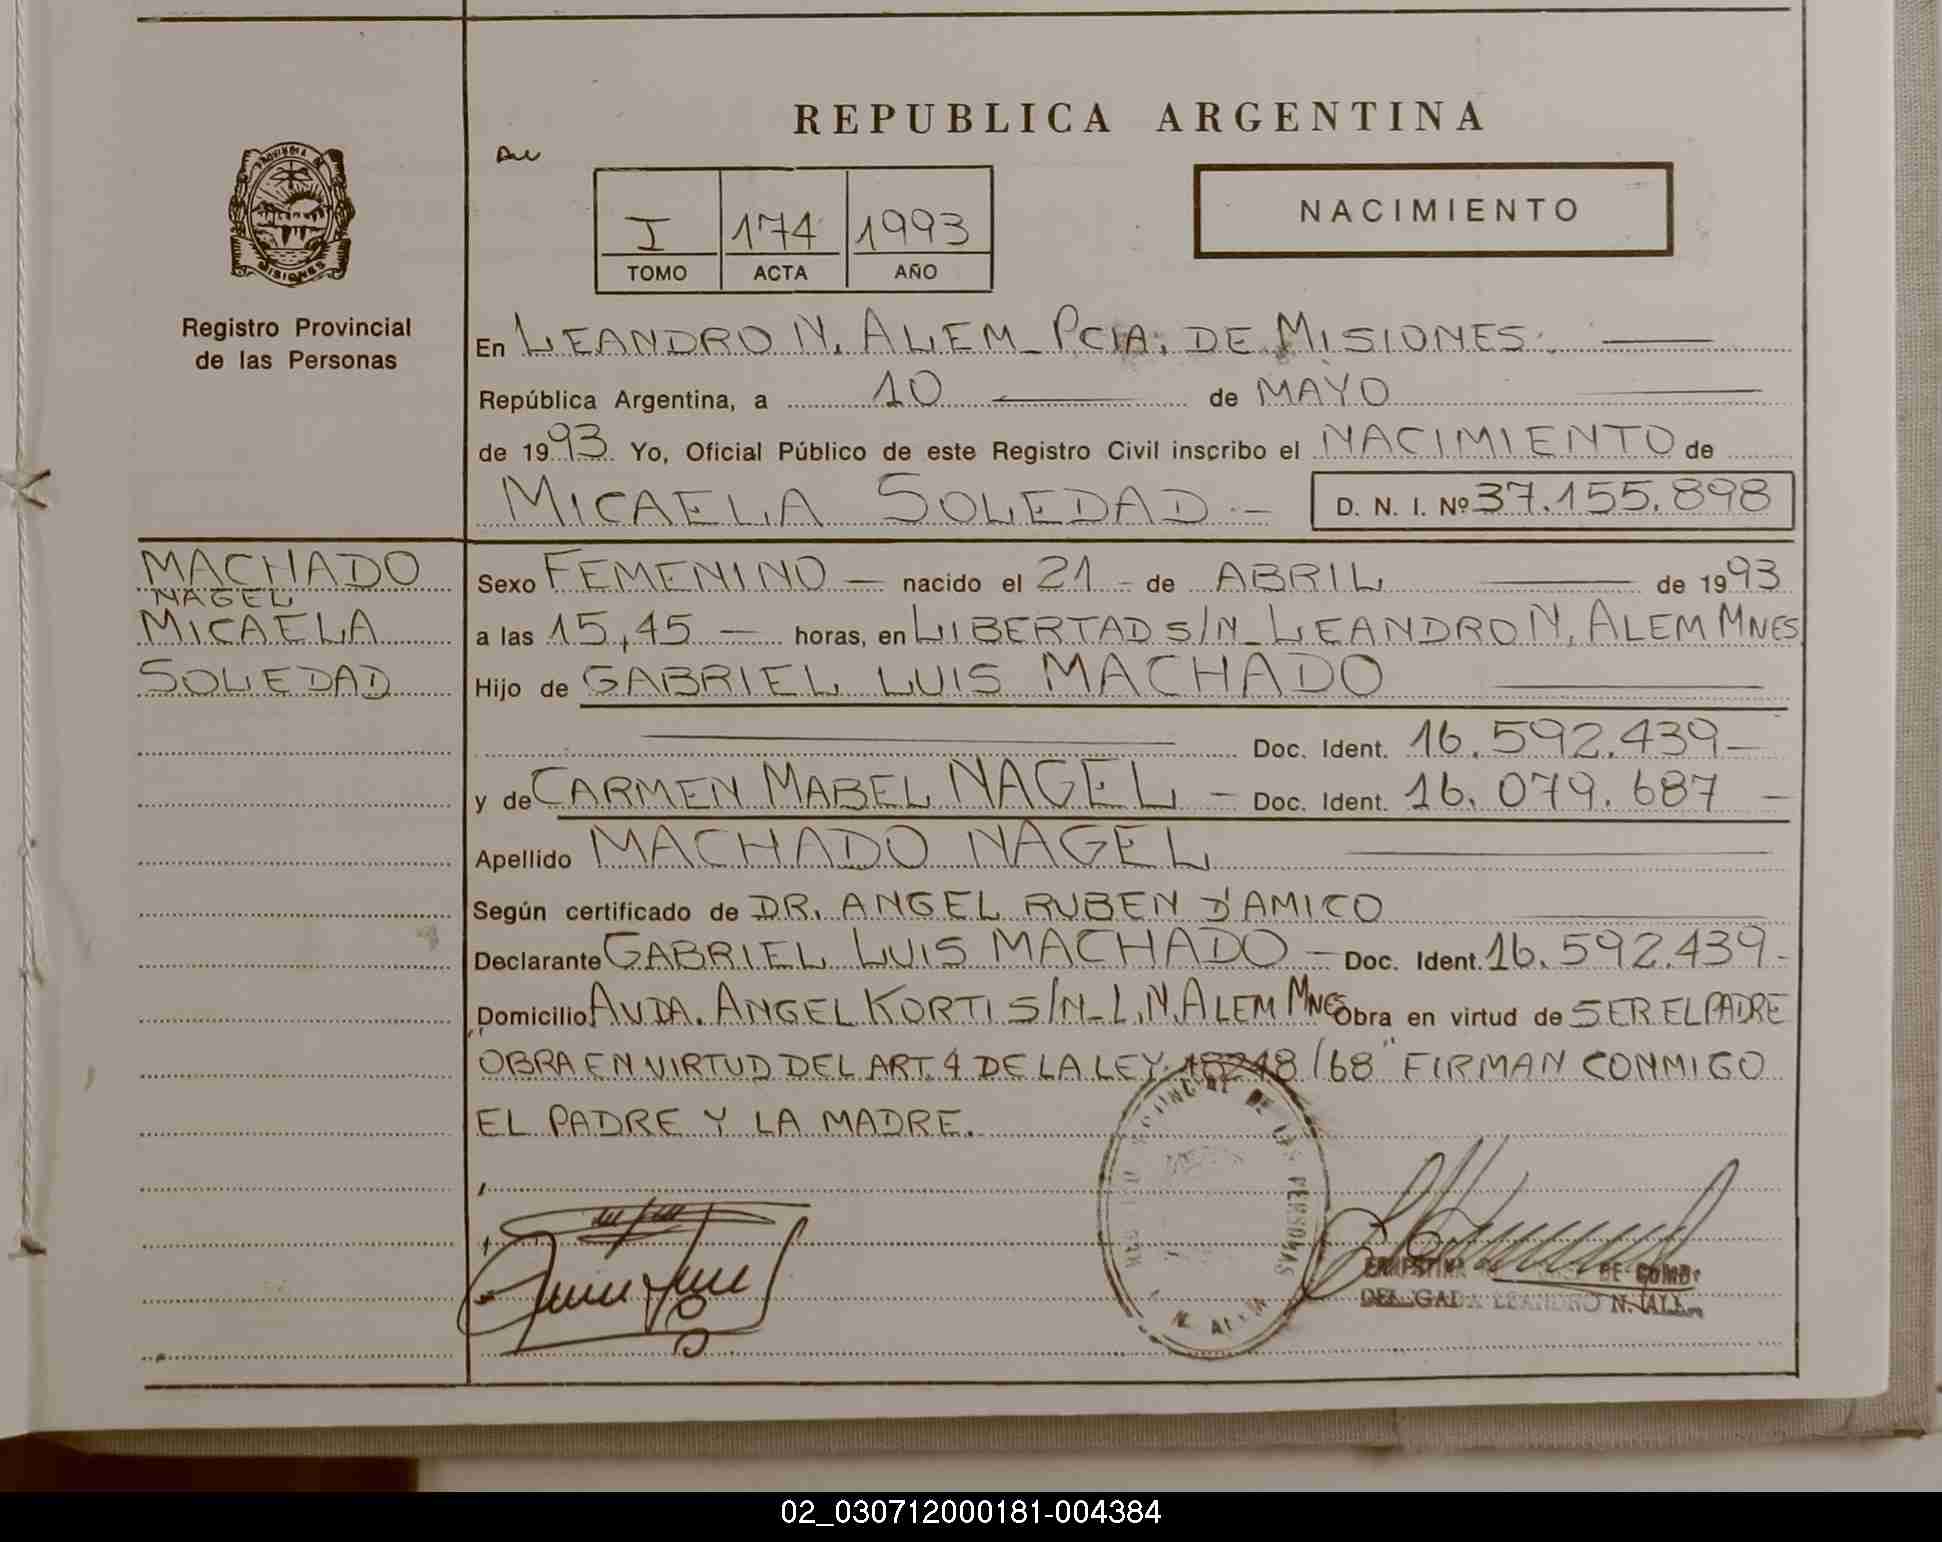 REPUBLICA ARGENTINA
PROVINCIA DE
MISIONES
Registro Provincial
de las Personas
I 174 1993
TOMO ACTA AÑO
NACIMIENTO
En LEANDRO N. ALEM_ PCIA. DE MISIONES.
República Argentina, a 10 de MAYO
de 1993 Yo, Oficial Público de este Registro Civil inscribo el NACIMIENTO de
MICAELA SOLEDAD.- D. N. I. Nº 37.155.898
MACHADO
NAGEL
MICAELA
SOLEDAD
Sexo FEMENINO — nacido el 21 - de ABRIL de 1993
a las 15,45 — horas, en LIBERTAD S/N_ LEANDRO N. ALEM MNES
Hijo de GABRIEL LUIS MACHADO
Doc. Ident. 16.592.439-
y de CARMEN MABEL NAGEL - Doc. Ident. 16.079.687 -
Apellido MACHADO NAGEL
Según certificado de DR. ANGEL RUBEN D'AMICO
Declarante GABRIEL LUIS MACHADO - Doc. Ident. 16.592.439-
Domicilio AVDA. ANGEL KORTI S/N_ L.N. ALEM MNES Obra en virtud de SER EL PADRE
"OBRA EN VIRTUD DEL ART. 4 DE LA LEY 18248/68" FIRMAN CONMIGO
EL PADRE Y LA MADRE.
DE LAS PERSONAS
N. ALEM
LEANDRO N. ALEM
02_030712000181-004384